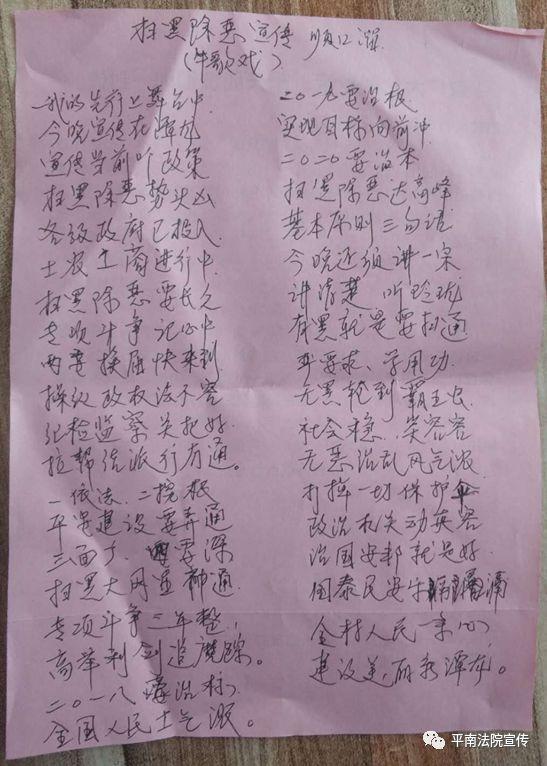 扫黑除恶宣传 顺口溜
(牛歌戏)
我的先行上舞台中
今晚宣传在潭龙
宣传当前的政策
扫黑除恶势头凶
各级政府已投入
士农工商进行中
扫黑除恶要长久
专项斗争记心中
两委换届快来到
操纵政权法不容
纪检监察关把好
拉帮结派行冇通。
一依法、二挖根
平安建设要弄通
三面了 要深
扫黑大网显神通
专项斗争三年整,
高举利剑追魔踪。
二〇一八要治标
全国人民士气浓。
二〇一九要治根
实现目标向前冲
二〇二〇要治本
扫黑除恶达高峰
基本原则三句话
今晚还须讲一宗
讲清楚、听玲珑
有黑就是要扫通
严要求、学用功
无黑轮到霸王虫
社会稳、笑容容
无恶治乱风气浓
打掉一切保护伞
政治机关动英容
治国安邦就是好
国泰民安乐
全村人民一条心
建设美丽新潭龙。
平南法院宣传